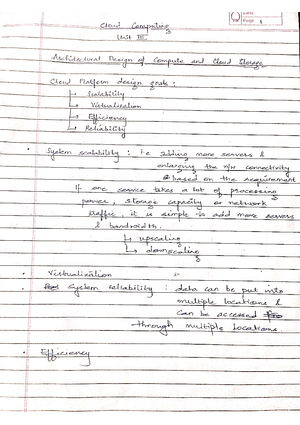 Date
Page 1
Cloud Computing
Unit III
Architectural Design of Compute and Cloud Storage
Cloud Platform design goals :
↳ Scalability
↳ Virtualization
↳ Efficiency
↳ Reliability
• System scalability : i.e Adding more servers &
enlarging the n/w connectivity
based on the requirement
If one service takes a lot of processing
power, storage capacity or network
traffic, it is simple to add more servers
& bandwidth.
↳ upscaling
↳ downscaling
• Virtualization
• System reliability : data can be put into
multiple locations &
can be accessed
through multiple locations
• Efficiency